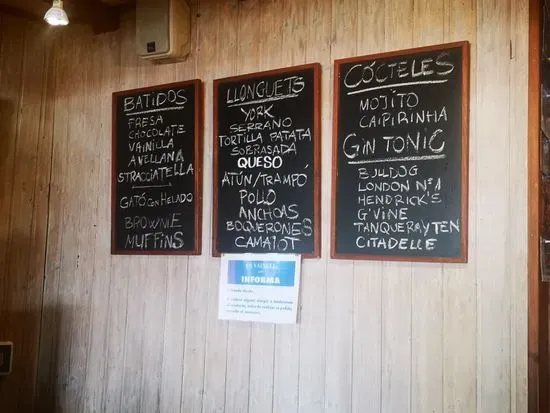 BATIDOS
FRESA
CHOCOLATE
VAINILLA
AVELLANA
STRACCIATELLA
GATÓ CON HELADO
BROWNIE
MUFFINS
LLONGUETS
YORK
SERRANO
TORTILLA PATATA
SOBRASADA
QUESO
ATÚN/TRAMPÓ
POLLO
ANCHOAS
BOQUERONES
CAMAIOT
CÓCTELES
MOJITO
CAIPIRINHA
GIN TONIC
BULLDOG
LONDON Nº1
HENDRICK'S
G'VINE
TANQUERAY TEN
CITADELLE
INFORMA